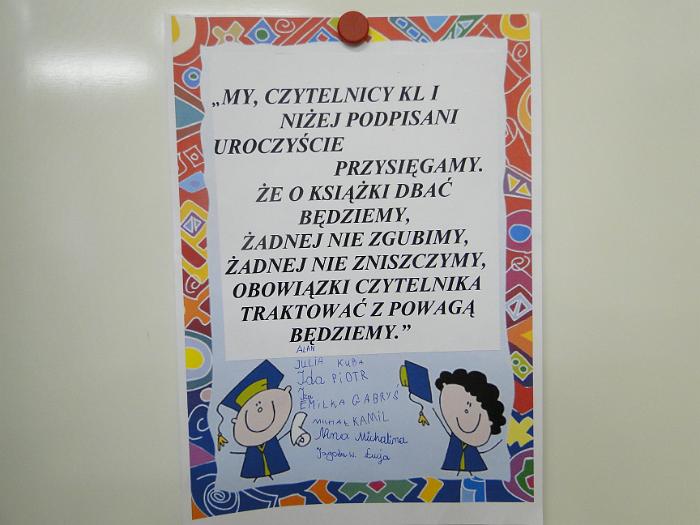 „MY, CZYTELNICY KL I
NIŻEJ PODPISANI
UROCZYŚCIE
PRZYSIĘGAMY.
ŻE O KSIĄŻKI DBAĆ
BĘDZIEMY,
ŻADNEJ NIE ZGUBIMY,
ŻADNEJ NIE ZNISZCZYMY,
OBOWIĄZKI CZYTELNIKA
TRAKTOWAĆ Z POWAGĄ
BĘDZIEMY.”
ALAN
JULIA KUBA
Ida PIOTR
EMILKA GABRYŚ
MICHAŁ KAMIL
Nina Michalina